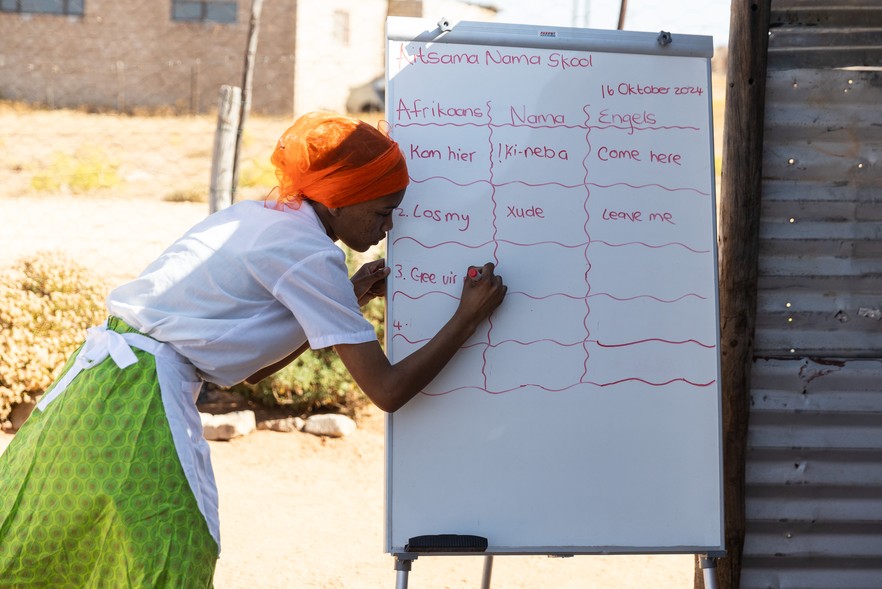 Aitsama Nama Skool
16 Oktober 2024
Afrikaans Nama Engels
Kom hier !Ki-neba Come here
2. Los my Xude Leave me
3. Gee vir
4.